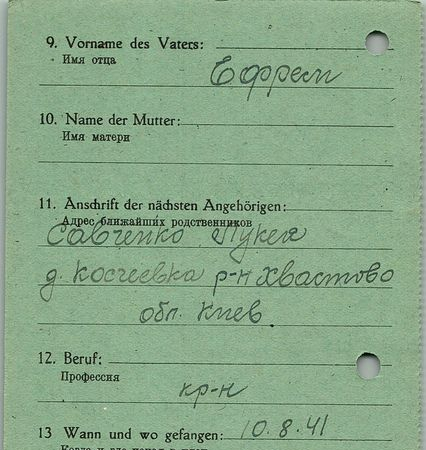 9. Vorname des Vaters:
Имя отца
Ефрем
10. Name der Mutter:
Имя матери
11. Anschrift der nächsten Angehörigen:
Адрес ближайших родственников
Савченко Лукея
д. Косчеевка р-н Хвастово
обл. Киев
12. Beruf:
Профессия
кр-н
13 Wann und wo gefangen: 10.8.41